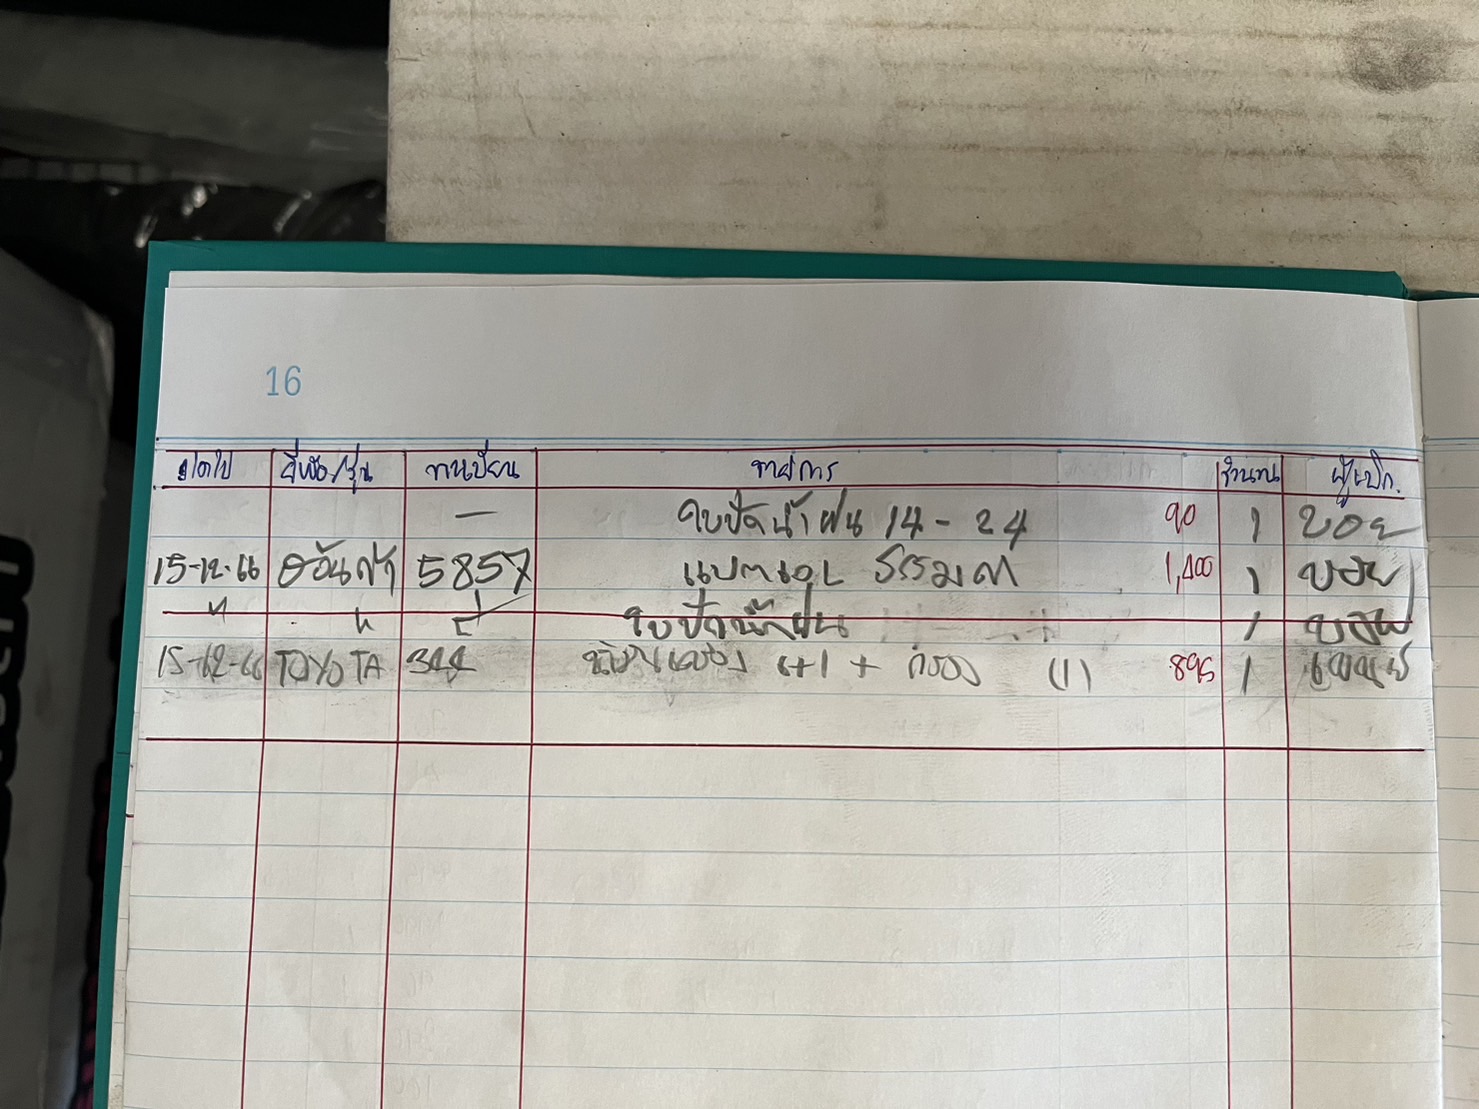 16
ยี่ห้อ/รุ่น ทะเบียน รายการ จำนวน ผู้เบิก.
— ใบปัดน้ำฝน 14 - 24 90 1 บอย
15-12-66 5857 แบตเตอรี่ ธรรมดา 1,400 1 บอย
" " ใบปัดน้ำฝน 1 บอย
15-12-66 TOYOTA 344 6+1 + กรอง (1) 895 1